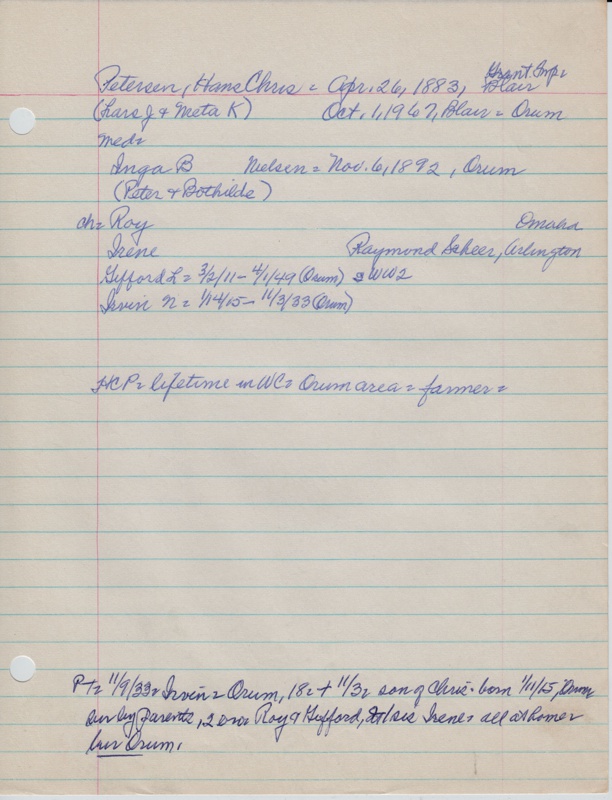 Petersen, Hans Chris = Apr. 26, 1883, Grant Twp = Blair
(Lars J & Meta K) Oct. 1, 1967, Blair = Orum
med =
Inga B Nielsen = Nov. 6, 1892, Orum
(Peter & Bothilde)
ch = Roy Omaha
Irene Raymond Scheer, Arlington
Gifford L = 3/2/11 - 4/1/49 (Orum) = WW2
Irvin N = 1/14/15 - 11/3/33 (Orum)
HCP = lifetime in WC = Orum area = farmer =
PT = 11/9/33 = Irvin = Orum, 18 = + 11/3 = son of Chris - born 1/11/15, Orum
Sur by parents, 2 bro = Roy & Gifford, 1 sis Irene = all at home =
bur Orum.